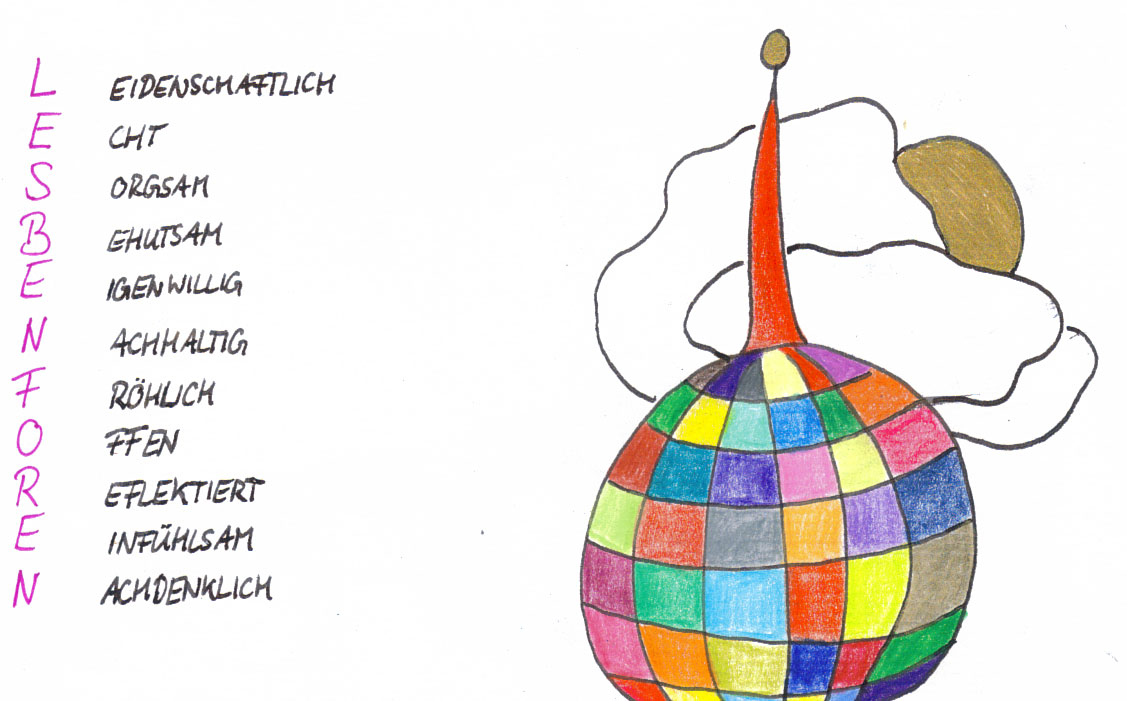 L EIDENSCHAFTLICH
E CHT
S ORGSAM
B EHUTSAM
E IGENWILLIG
N ACHHALTIG
F RÖHLICH
O FFEN
R EFLEKTIERT
E INFÜHLSAM
N ACHDENKLICH